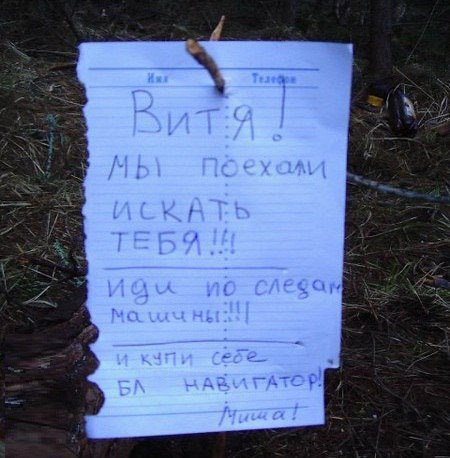 Имя Телефон
Витя!
мы поехали
искать
тебя!!!
иди по следам
машины!!!
и купи себе
бл навигатор!
Миша!